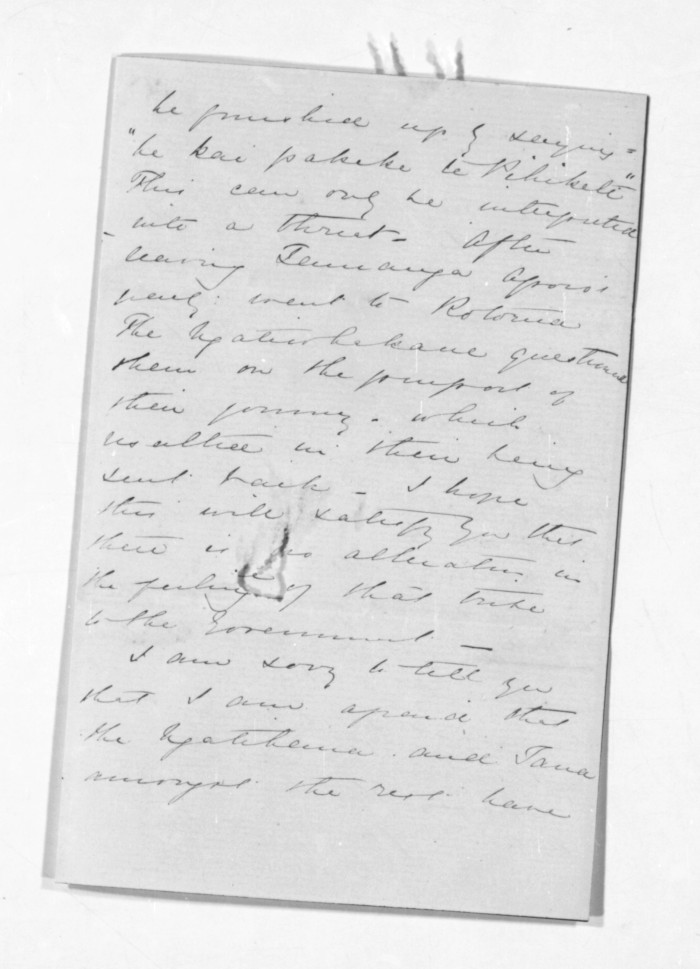 he finished up by saying
"he kai pakeke te Pihikete"
This can only be interpreted
into a threat. After
leaving Tauranga
party went to Rotorua
The Ngatiwhakaue questioned
them on the purport of
their journey. which
resulted in their being
sent back – I hope
this will satisfy you that
there is no alteration in
the feeling of that tribe
to the Government –
I am sorry to tell you
that I am afraid that
the and
amongst the rest have